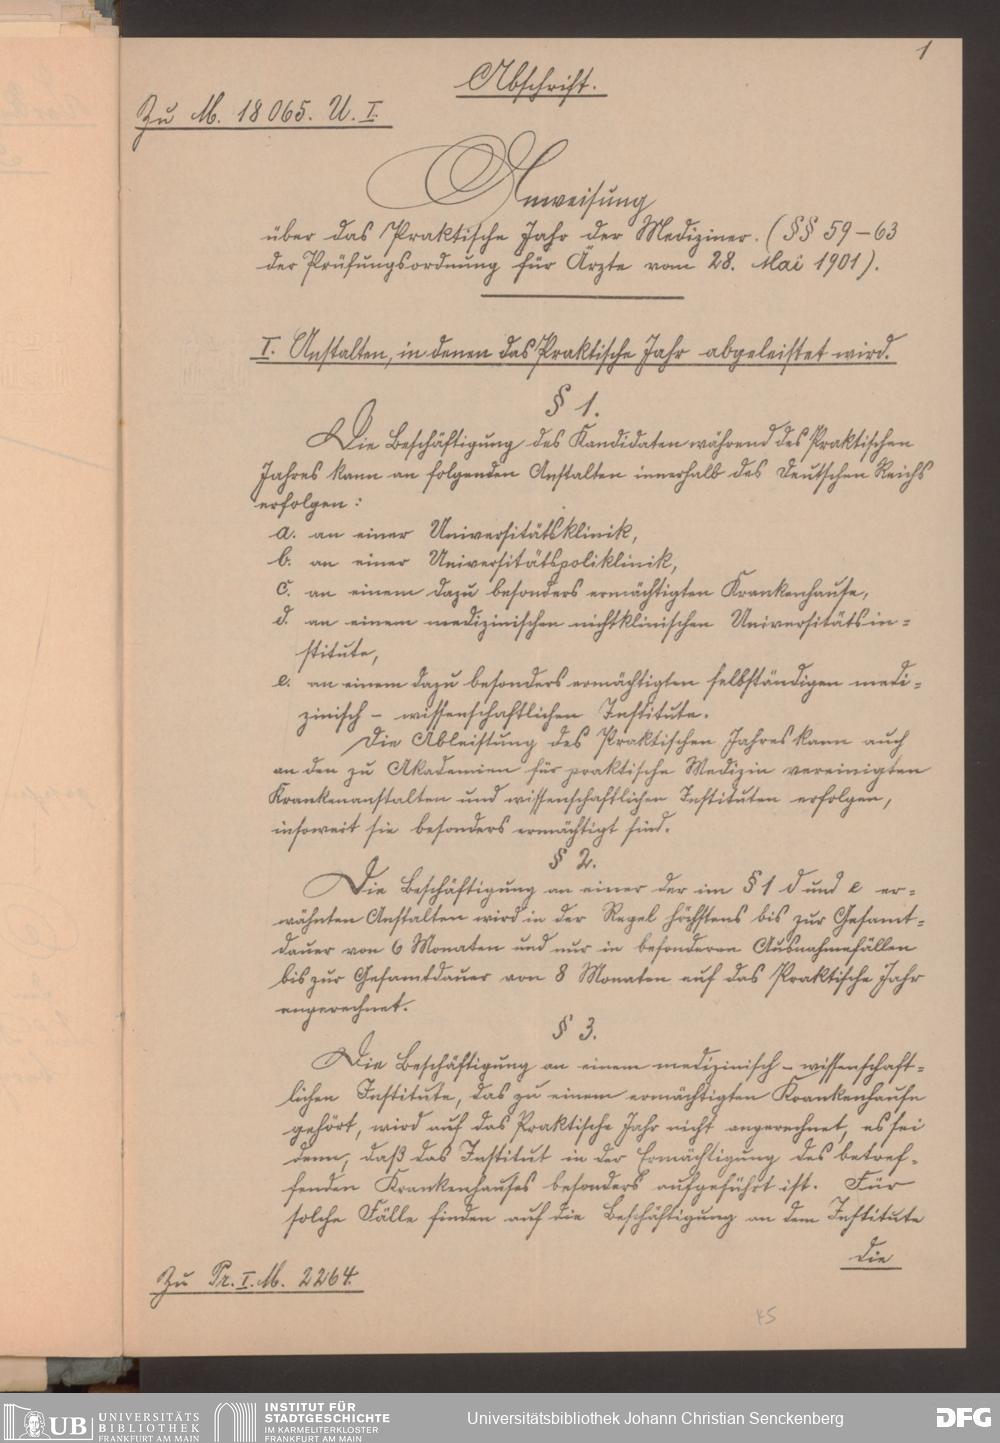 1
Abschrift.
Zu M. 18065. U. I.
Anweisung
über das Praktische Jahr der Mediziner. (§§ 59–63
der Prüfungsordnung für Ärzte vom 28. Mai 1901).
I. Anstalten, in denen das Praktische Jahr abgeleistet wird.
§ 1.
Die Beschäftigung des Kandidaten während des Praktischen
Jahres kann an folgenden Anstalten innerhalb des Deutschen Reichs
erfolgen:
a. an einer Universitätsklinik,
b. an einer Universitätspoliklinik,
c. an einem dazu besonders ermächtigten Krankenhause,
d. an einem medizinischen nichtklinischen Universitätsin=
stitute,
e. an einem dazu besonders ermächtigten selbständigen medi=
zinisch – wissenschaftlichen Institute.
Die Ableistung des Praktischen Jahres kann auch
an den zu Akademien für praktische Medizin vereinigten
Krankenanstalten und wissenschaftlichen Instituten erfolgen,
insoweit sie besonders ermächtigt sind.
§ 2.
Die Beschäftigung an einer der im § 1 d und e er=
wähnten Anstalten wird in der Regel höchstens bis zur Gesamt=
dauer von 6 Monaten und nur in besonderen Ausnahmefällen
bis zur Gesamtdauer von 8 Monaten auf das Praktische Jahr
angerechnet.
§ 3.
Die Beschäftigung an einem medizinisch – wissenschaft=
lichen Institute, das zu einem ermächtigten Krankenhause
gehört, wird auf das Praktische Jahr nicht angerechnet, es sei
denn, daß das Institut in der Ermächtigung des betref=
fenden Krankenhauses besonders aufgeführt ist. Für
solche Fälle finden auf die Beschäftigung an dem Institute
die
Zu Pr. I. M. 2264.
KS
UB UNIVERSITÄTS
BIBLIOTHEK
FRANKFURT AM MAIN
INSTITUT FÜR
STADTGESCHICHTE
IM KARMELITERKLOSTER
FRANKFURT AM MAIN
Universitätsbibliothek Johann Christian Senckenberg
DFG